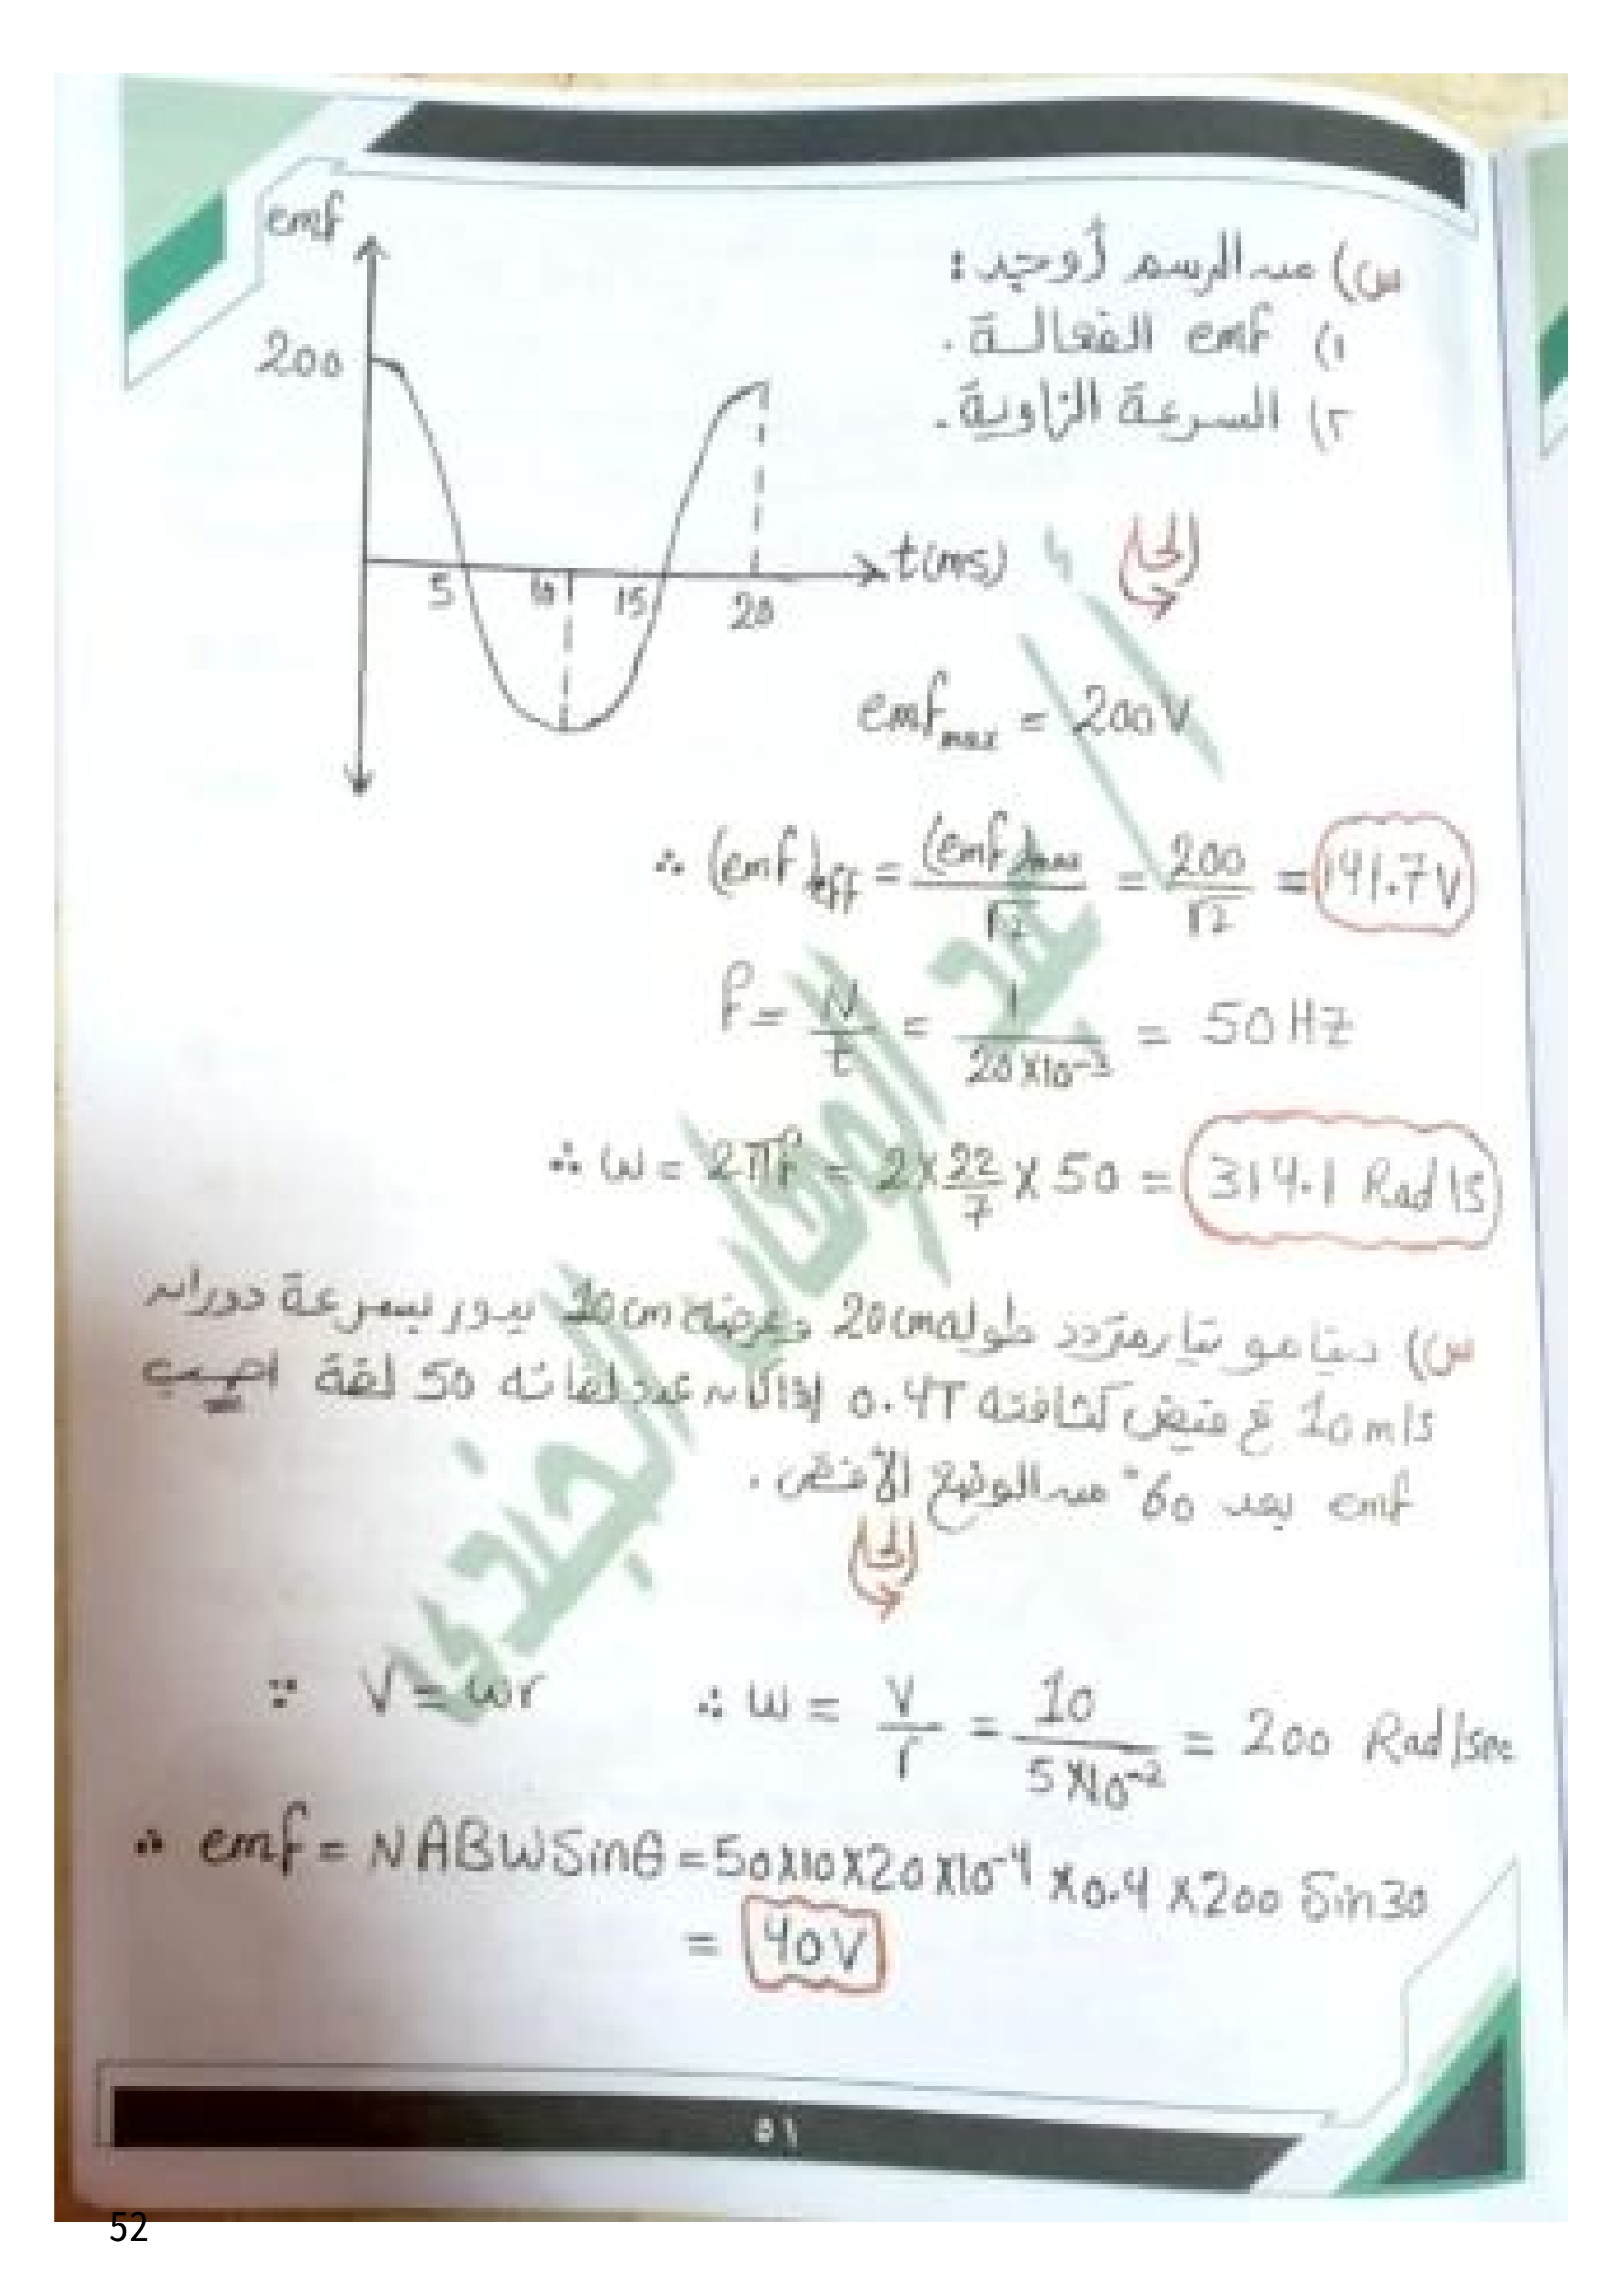 س) من الرسم أوجد :
١) emf الفعالة .
٢) السرعة الزاوية .
emf
200
5 10 15 20
t(ms)
الحل
emf max = 200V
∴ (emf)eff = (emf)max / √2 = 200 / √2 = 141.7V
f = N / t = 1 / 20×10⁻³ = 50 Hz
∴ ω = 2πf = 2 × 22/7 × 50 = 314.1 Rad/s
س) دينامو تيار متردد طوله 20cm وعرضه 10cm يدور بسرعة دوران
10 m/s في فيض كثافته 0.4T إذا كان عدد لفاته 50 لفة احسب
emf بعد 60° من الوضع الأفقى .
الحل
∵ V = ωr ∴ ω = V / r = 10 / 5×10⁻² = 200 Rad/sec
∴ emf = NABWSinθ = 50×10×20×10⁻⁴ × 0.4 × 200 Sin30
= 40V
٥١
52